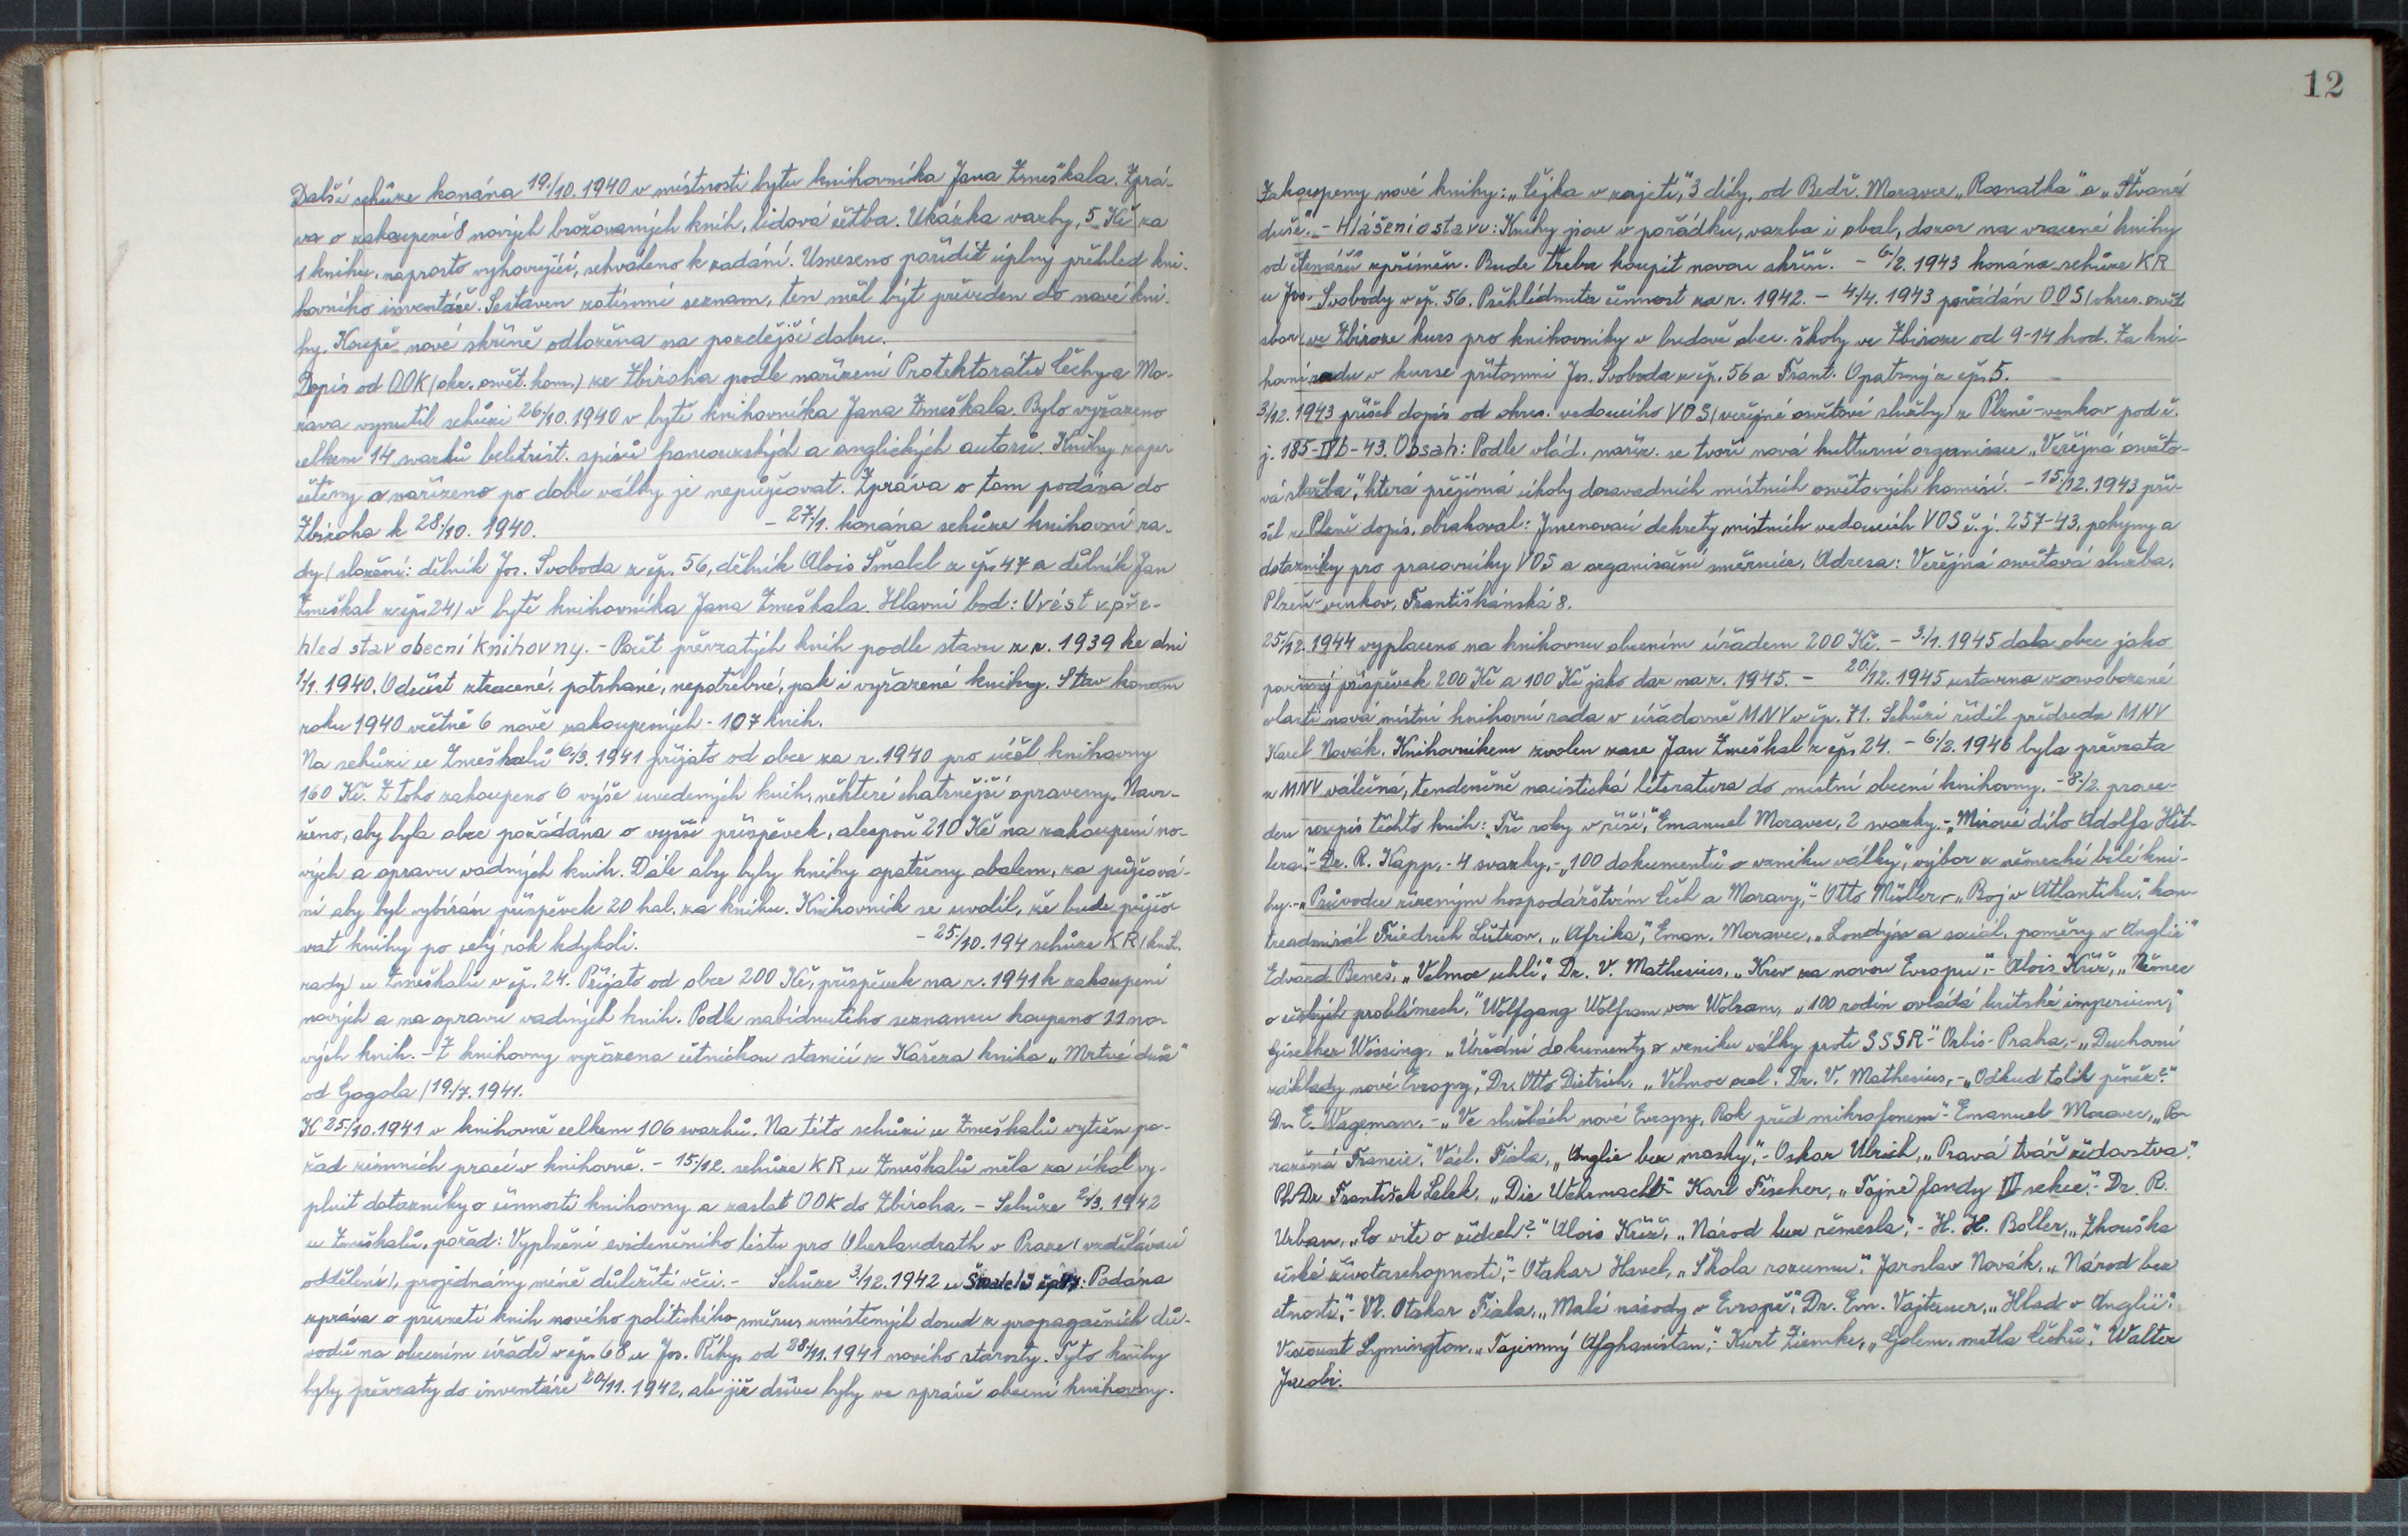 Další schůze konána 19./10. 1940 v místnosti bytu knihovníka Jana Zmeškala. Zprá-
va o zakoupení 8 nových brožovaných knih, lidová četba. Ukázka vazby, 5 Kč za
1 knihu, naprosto vyhovující, schváleno k zadání. Usneseno pořídit úplný přehled kni-
hovního inventáře. Sestaven zatímní seznam, ten měl být převeden do nové kni-
hy. Koupě nové skříně odložena na pozdější dobu.
Dopis od OOK (okr. osvět. kom.) ze Zbiroha podle nařízení Protektorátu Čechy a Mo-
rava vynutil schůzi 26./10. 1940 v bytě knihovníka Jana Zmeškala. Bylo vyřazeno
celkem 14 svazků beletrist. spisů francouzských a anglických autorů. Knihy zape-
četěny a nařízeno po dobu války je nepůjčovat. Zpráva o tom podána do
Zbiroha k 28./10. 1940. - 27./1. konána schůze knihovní ra-
dy (složení: dělník Jos. Svoboda z čp. 56, dělník Alois Šmalcl z čp. 47 a dělník Jan
Zmeškal z čp. 24) v bytě knihovníka Jana Zmeškala. Hlavní bod: Uvést v pře-
hled stav obecní knihovny. - Počet převzatých knih podle stavu z r. 1939 ke dni
1./1. 1940. Odečíst ztracené, potrhané, nepotřebné, pak i vyřazené knihy. Stav koncem
roku 1940 včetně 6 nově zakoupených - 107 knih.
Na schůzi u Zmeškalů 6./3. 1941 přijato od obce za r. 1940 pro účel knihovny
160 Kč. Z toho zakoupeno 6 výše uvedených knih, některé chatrnější opraveny. Navr-
ženo, aby byla obec požádána o vyšší příspěvek, alespoň 210 Kč na zakoupení no-
vých a opravu vadných knih. Dále aby byly knihy opatřeny obalem, za půjčová-
ní aby byl vybírán příspěvek 20 hal. za knihu. Knihovník se uvolil, že bude půjčo-
vat knihy po celý rok kdykoli. - 25./10. 194 schůze KR (knih.
rady) u Zmeškalů v čp. 24. Přijato od obce 200 Kč, příspěvek na r. 1941 k zakoupení
nových a na opravu vadných knih. Podle nabídnutého seznamu koupeno 11 no-
vých knih. - Z knihovny vyřazena četnickou stanicí z Kařeza kniha „Mrtvé duše"
od Gogola (19./7. 1941.
K 25./10. 1941 v knihovně celkem 106 svazků. Na této schůzi u Zmeškalů vytčen po-
řad zimních prací v knihovně. - 15./12. schůze KR u Zmeškalů měla za úkol vy-
plnit dotazníky o činnosti knihovny a zaslat OOK do Zbiroha. - Schůze 2./3. 1942
u Zmeškalů, pořad: Vyplnění evidenčního listu pro Oberlandrath v Praze (vzdělávací
oddělení), projednány méně důležité věci. - Schůze 3./12. 1942 u Šmalclů čp. 47: Podána
zpráva o převzetí knih nového politického směru, umístěných dosud z propagačních dů-
vodů na obecním úřadě v čp. 68 u Jos. Říhy, od 28./11. 1941 nového starosty. Tyto knihy
byly převzaty do inventáře 20./11. 1942, ale již dříve byly ve správě obecní knihovny.
12
Zakoupeny nové knihy: „Čejka v zajetí," 3 díly, od Bedř. Moravce „Roznatka" a „Štvané
duše". - Hlášení o stavu: Knihy jsou v pořádku, vazba i obal, dozor na vracené knihy
od čtenářů zpřísněn. Bude třeba koupit novou skříň. - 6./2. 1943 konána schůze KR
u Jos. Svobody v čp. 56. Přehlédnuta činnost za r. 1942. - 4./4. 1943 pořádán OOS (okres. osvět.
sbor) ve Zbiroze kurs pro knihovníky v budově obec. školy ve Zbiroze od 9-14 hod. Za kni-
hovní radu v kurse přítomni Jos. Svoboda z čp. 56 a Frant. Opatrný z čp. 5.
3./12. 1943 přišel dopis od okres. vedoucího VOS (veřejné osvětové služby) z Plzně-venkov pod č.
j. 185-IVb-43. Obsah: Podle vlád. naříz. se tvoří nová kulturní organisace „Veřejná osvěto-
vá služba", která přejímá úkoly dosavadních místních osvětových komisí. - 15./12. 1943 při-
šel z Plzně dopis, obsahoval: Jmenovací dekrety místních vedoucích VOS č. j. 257-43, pokyny a
dotazníky pro pracovníky VOS a organisační směrnice. Adresa: Veřejná osvětová služba,
Plzeň-venkov, Františkánská 8.
25./12. 1944 vyplaceno na knihovnu obecním úřadem 200 Kč. - 3./1. 1945 dala obec jako
povinný příspěvek 200 Kč a 100 Kč jako dar na r. 1945. - 20./12. 1945 ustavena v osvobozené
vlasti nová místní knihovní rada v úřadovně MNV v čp. 71. Schůzi řídil předseda MNV
Karel Novák. Knihovníkem zvolen zase Jan Zmeškal z čp. 24. - 6./2. 1946 byla převzata
z MNV válečná, tendenčně nacistická literatura do místní obecní knihovny. - 8./2. prove-
den soupis těchto knih: „Tři roky v říši," Emanuel Moravec, 2 svazky. - „Mírové dílo Adolfa Hit-
lera," - Dr. R. Kapp, - 4 svazky, - „100 dokumentů o vzniku války", výbor z německé bílé kni-
hy. - „Průvodce řízeným hospodářstvím Čech a Moravy," - Otto Müller, - „Boj v Atlantiku," kon-
treadmirál Friedrich Lützow, „Afrika," Eman. Moravec, „Londýn a sociál. poměry v Anglii"
Edvard Beneš, „Velmoc uhlí," Dr. V. Mathesius, „Krev za novou Evropu", - Alois Kříž, „Němec
o českých problémech," Wolfgang Wolfram von Wolmar, „100 rodin ovládá britské imperium,"
Giselher Wirsing, „Úřední dokumenty o vzniku války proti SSSR" - Orbis - Praha, - „Duchovní
základy nové Evropy," Dr. Otto Dietrich, „Velmoc ocel". Dr. V. Mathesius, - „Odkud tolik peněz?"
Dr. E. Wageman. - „Ve službách nové Evropy, Rok před mikrofonem" - Emanuel Moravec, „Po-
ražená Francie," Václ. Fiala, „Anglie bez masky," - Oskar Ulrich, „Pravá tvář židovstva".
PhDr František Lelek, „Die Wehrmacht" - Karl Fischer, „Tajné fondy III sekce", - Dr. R.
Urban, „Co víte o židech?" Alois Kříž, „Národ bez řemesla", - H. H. Boller, „Zkouška
české životaschopnosti," - Otakar Havel, „Škola rozumu". Jaroslav Novák, „Národ bez
ctnosti", - Vl. Otakar Fiala, „Malé národy v Evropě," Dr. Em. Vajtauer, „Hlad v Anglii",
Viscount Lymington, „Tajemný Afghanistan", - Kurt Ziemke, „Golem, metla Čechů", Walter
Jacobi.